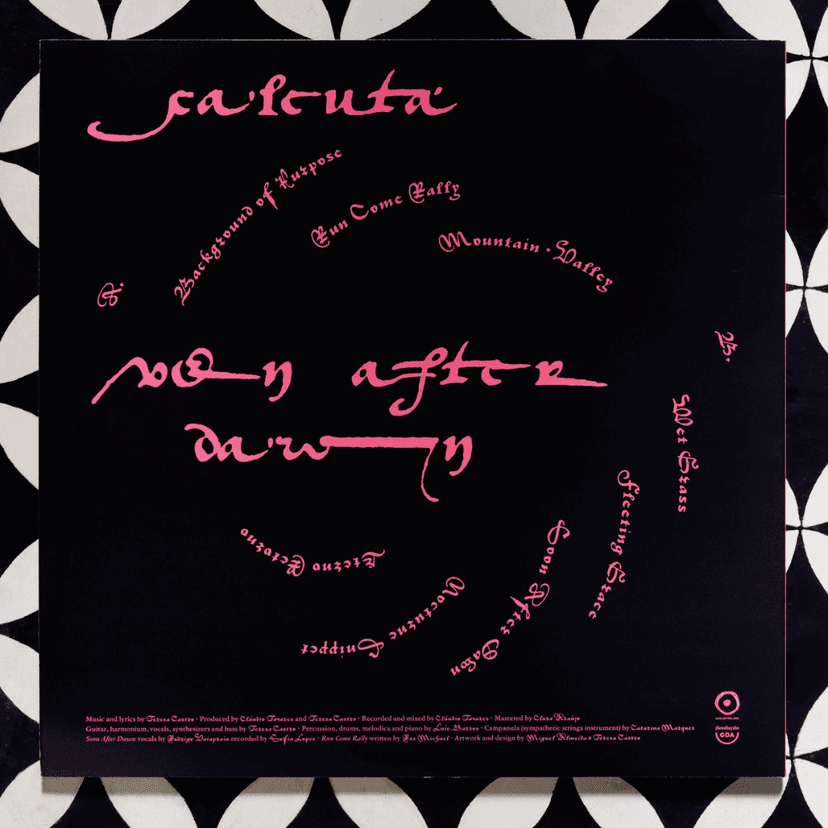 calcutá
A.
Background of Purpose
Run Come Rally
Mountain · Valley
soon after
dawn
B.
Wet Grass
Fleeting Grace
Soon After Dawn
Nocturne Snippet
Eterno Retorno
Music and lyrics by Teresa Castro · Produced by Cláudio Tavares and Teresa Castro · Recorded and mixed by Cláudio Tavares · Mastered by Clara Araújo
Guitar, harmonium, vocals, synthesizers and bass by Teresa Castro · Percussion, drums, melodica and piano by Luís Barros · Campanula (sympathetic strings instrument) by Catarina Marques
Soon After Dawn vocals by Rodrigo Vaiapraia recorded by Sofia Lopes · Run Come Rally written by Ras Michael · Artwork and design by Miguel Almeida + Teresa Castro
fundação
GDA